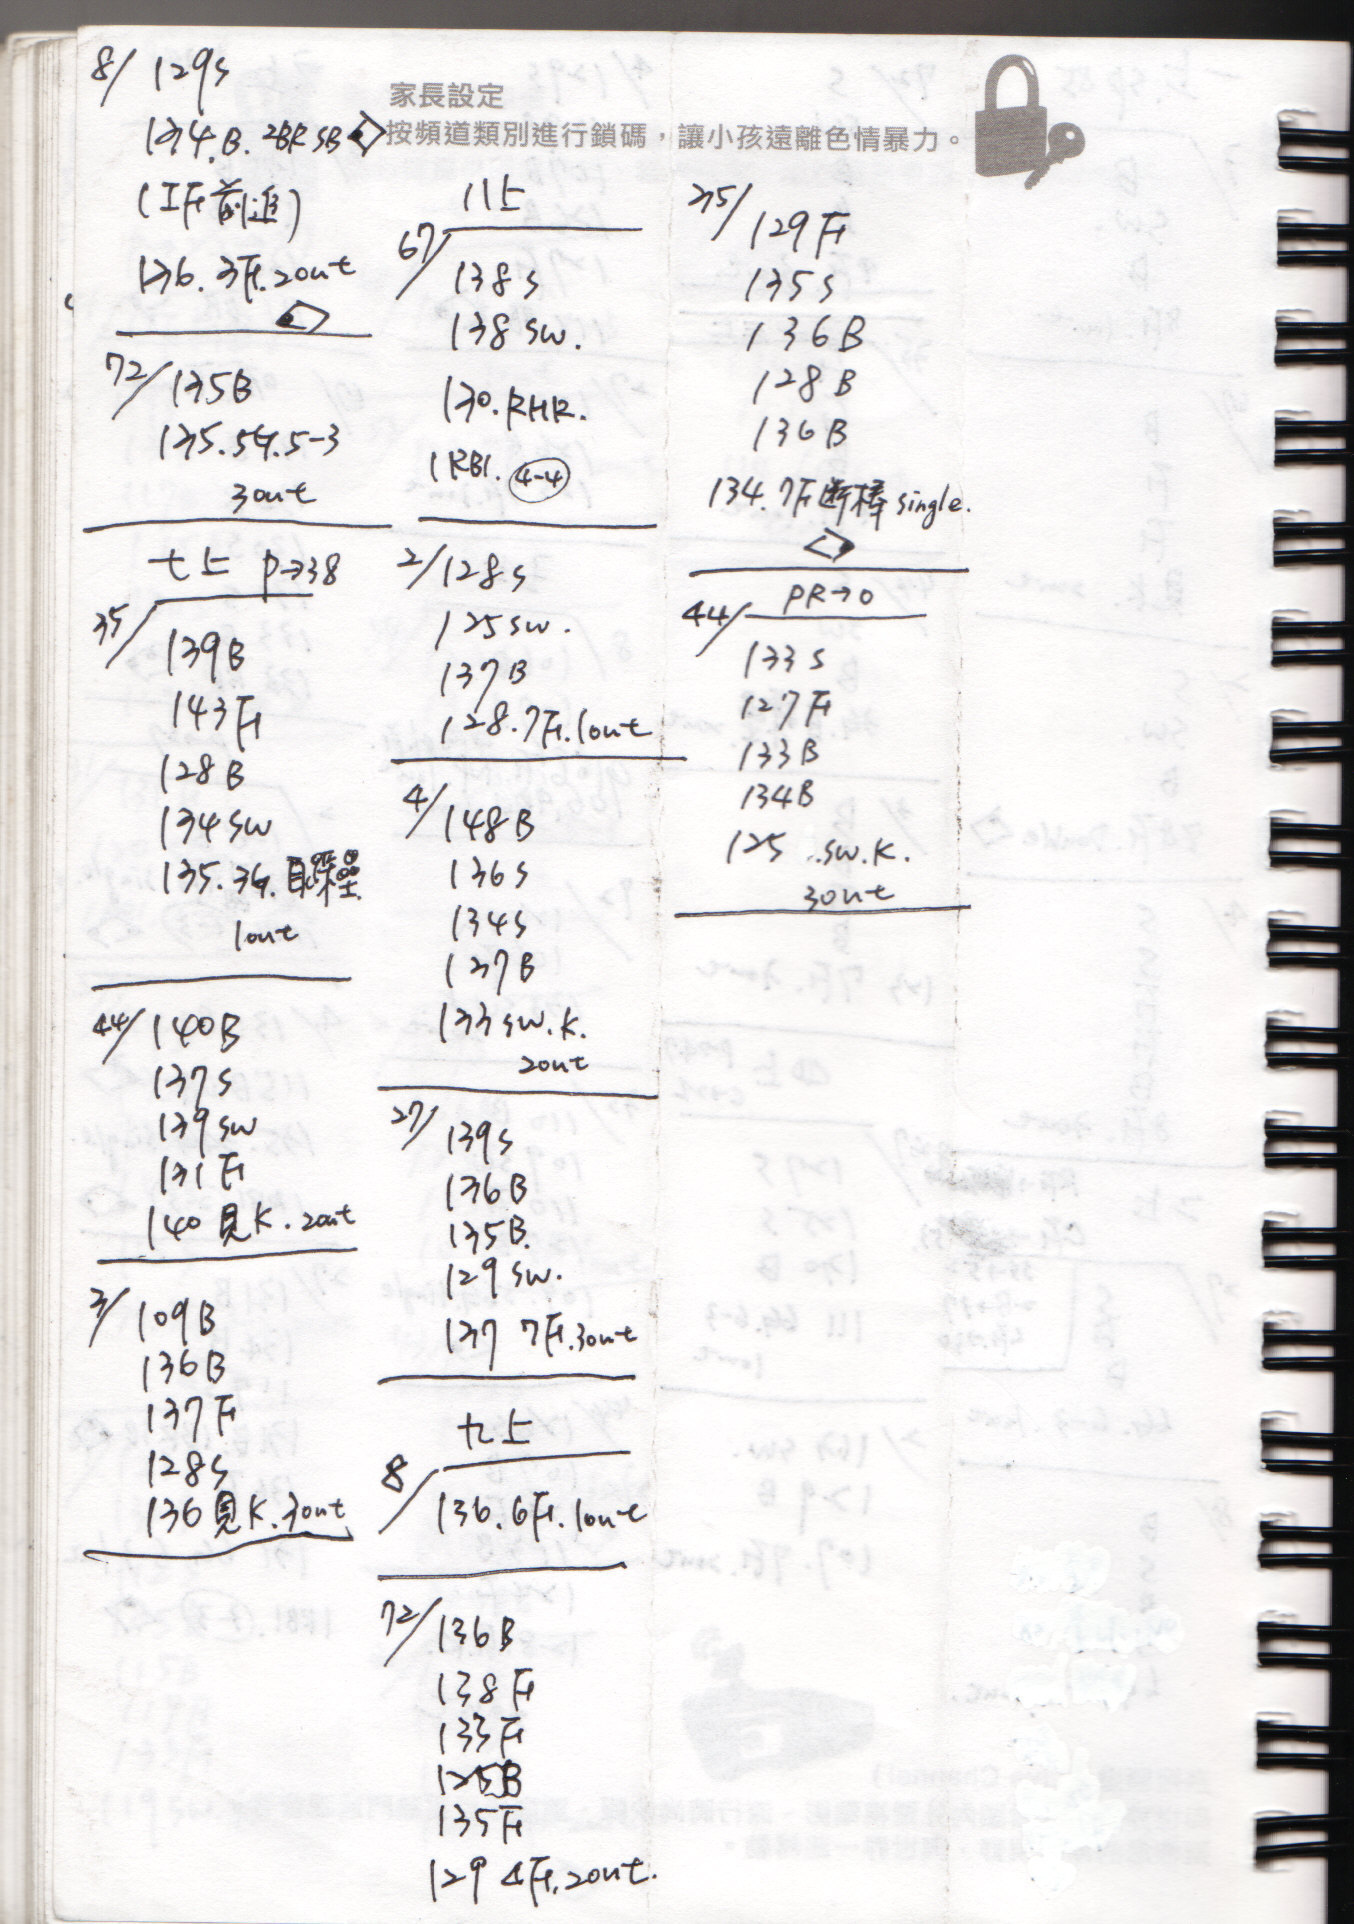 家長設定
按頻道類別進行鎖碼，讓小孩遠離色情暴力。
8/ 129S
134.B. 2BK SB
(IF前進)
136. 3F. 2out
72/ 135B
135. 5G. 5-3
3out
七上 P→38
35/
139B
143F
128B
134SW
135. 3G. 自踩壘
1out
44/ 140B
137S
139SW
131F
140見K. 2out
3/ 109B
136B
137F
128S
136見K. 3out
八上
67/
138S
138SW.
130. RHR.
1RBI. 4-4
2/ 128S
125SW.
137B
128. 7F. 1out
4/ 148B
136S
134S
137B
133SW. K.
2out
27/ 139S
136B
135B.
129SW.
137 7F. 3out
九上
8/ 136. 6F. 1out
72/ 136B
138F
133F
125B
135F
129 4F. 2out.
35/ 129F
135S
136B
128B
136B
134. 7F斷棒single.
PR→0
44/
133S
127F
133B
134B
125 .SW. K.
3out